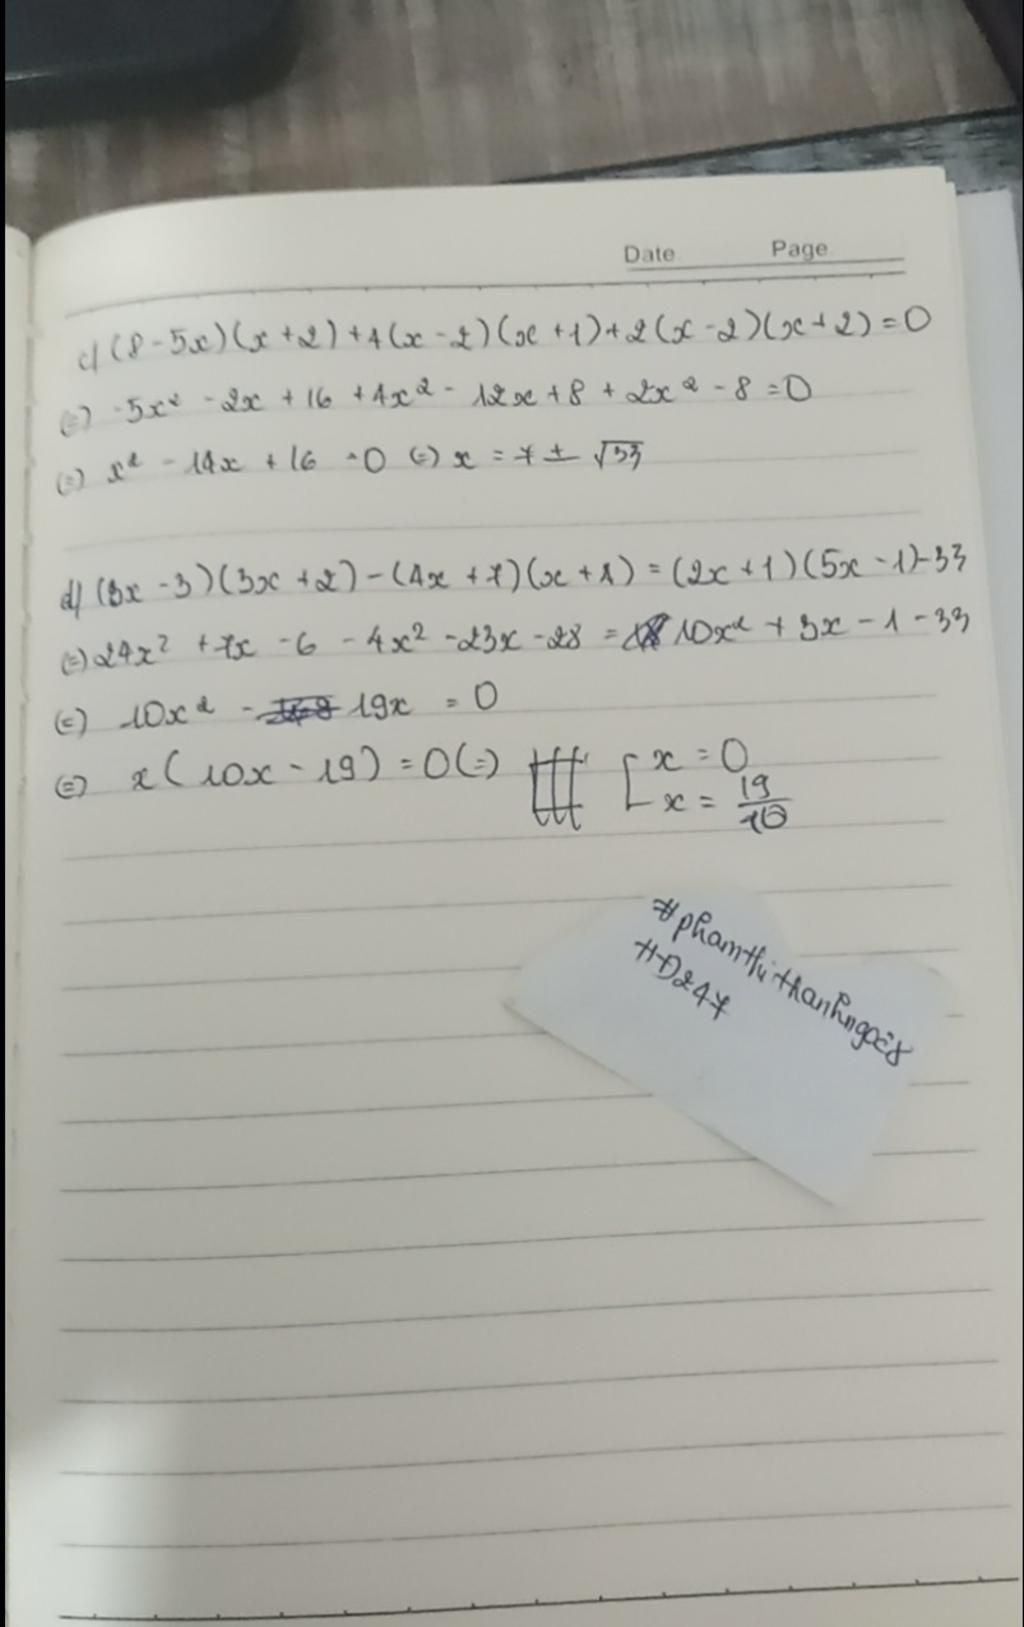 Date Page
c/ (8-5x)(x+2)+4(x-2)(x+1)+2(x-2)(x+2)=0
(=) -5x² -2x + 16 + 4x² - 12x + 8 + 2x² - 8 = 0
(=) x² - 14x + 16 = 0 (=) x = 7 ± √33
d/ (8x-3)(3x+2)-(4x+7)(x+4)=(2x+1)(5x-1)-33
(=) 24x² + 7x - 6 - 4x² - 23x - 28 = 10x² + 3x - 1 - 33
(=) 10x² - 19x = 0
(=) x(10x-19)=0(=) [x = 0
x = 19/10
#phamthithanhngoc8
#D247